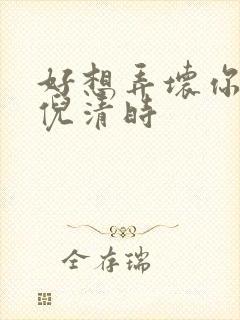 好想弄坏你
倪清时
全存瑞